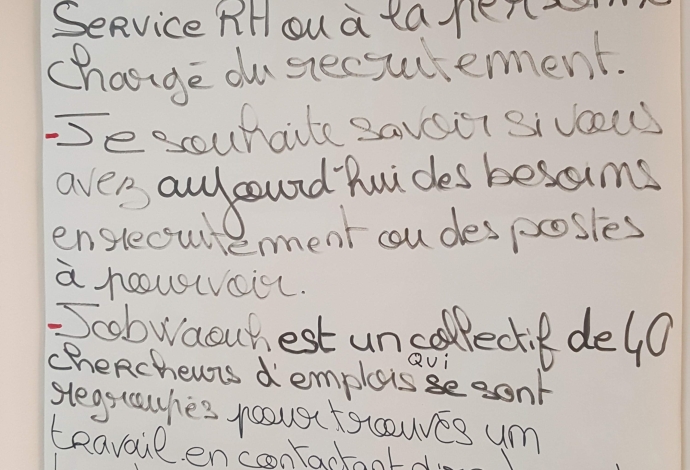 Service RH ou à la personne
Chargé du recrutement.
- Je souhaite savoir si vous
avez aujourd'hui des besoins
en recrutement ou des postes
à pourvoir.
- JobWaouh est un collectif de 40
chercheurs d'emplois QUI se sont
regroupés pour trouvés un
travail en contactant